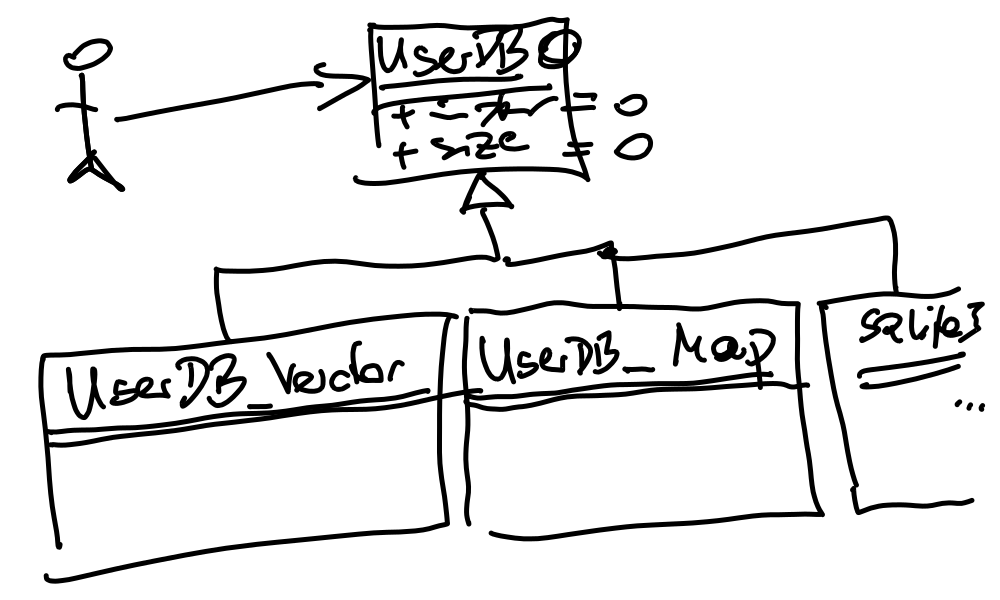 UserDB
+ = 0
+ size = 0
UserDB_Vector
UserDB_Map
sqlite3
...